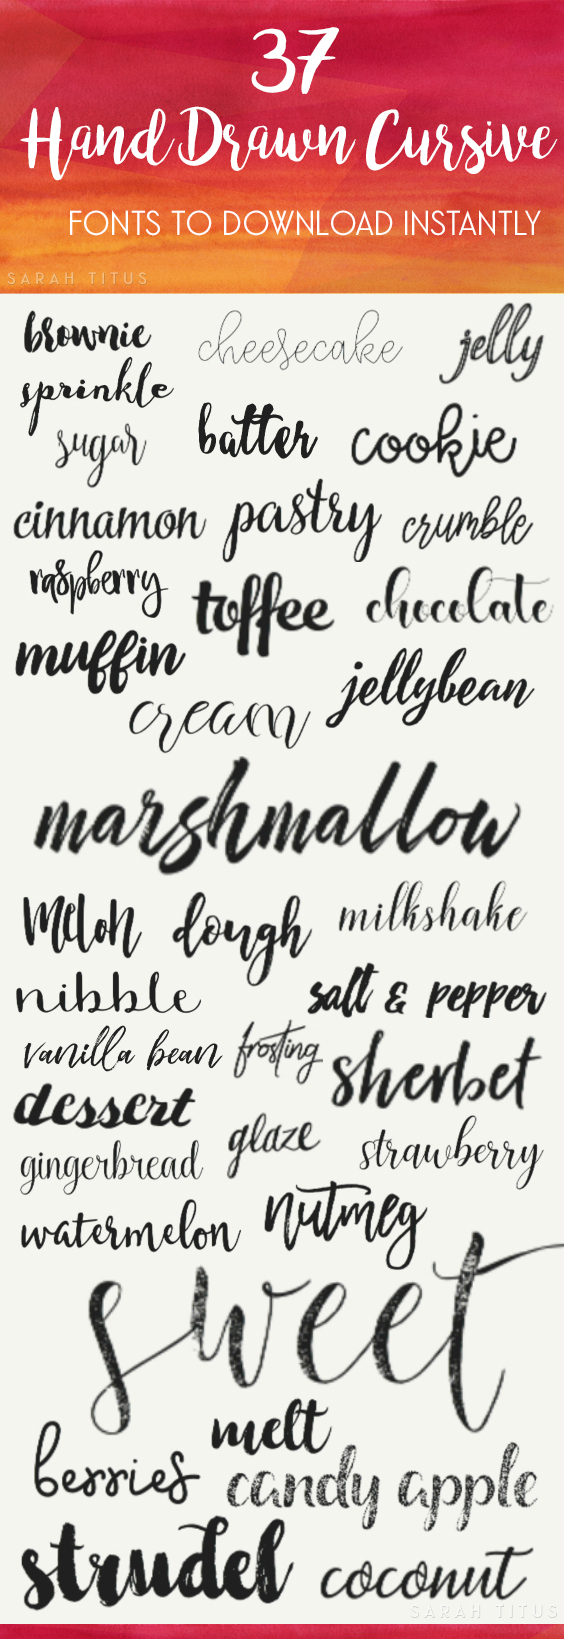 37
Hand Drawn Cursive
FONTS TO DOWNLOAD INSTANTLY
SARAH TITUS
brownie cheesecake jelly
sprinkle
sugar batter cookie
cinnamon pastry crumble
raspberry toffee chocolate
muffin jellybean
cream
marshmallow
melon dough milkshake
nibble salt & pepper
vanilla bean frosting sherbet
dessert
gingerbread glaze strawberry
watermelon nutmeg
sweet
melt
berries candy apple
strudel coconut
SARAH TITUS